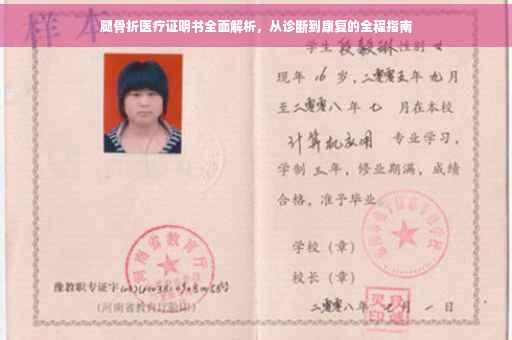 腿骨折医疗证明书全面解析，从诊断到康复的全程指南
样本
学生段毅琳性别女
现年16岁，二零零五年九月
至二零零八年七月在本校
计算机应用 专业学习，
学制三年，修业期满，成绩
合格，准予毕业。
学校（章）
校长（章）
二零零八年七月一日
河南省教育厅
豫教职专证字
（河南省教育厅验印）